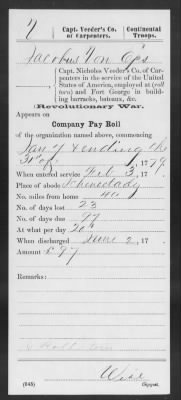 7
Capt. Veeder's Co. of Carpenters.
Continental Troops.
Jacobus Von Eps
Capt. Nicholas Veeder's Co. of Carpenters in the service of the United States of America, employed at
and Fort George in building barracks, bateaux, &c.
Revolutionary War.
Appears on
Company Pay Roll
of the organization named above, commencing
Jan 7 & ending the
31 of, 1779
When entered service Feb 3, 17
Place of abode Schenectady
No. miles from home 40
No. of days lost 23
No. of days due 97
At what per day 20/
When discharged June 2, 17
Amount £97
Remarks:
(645)
Wise
Copyist.